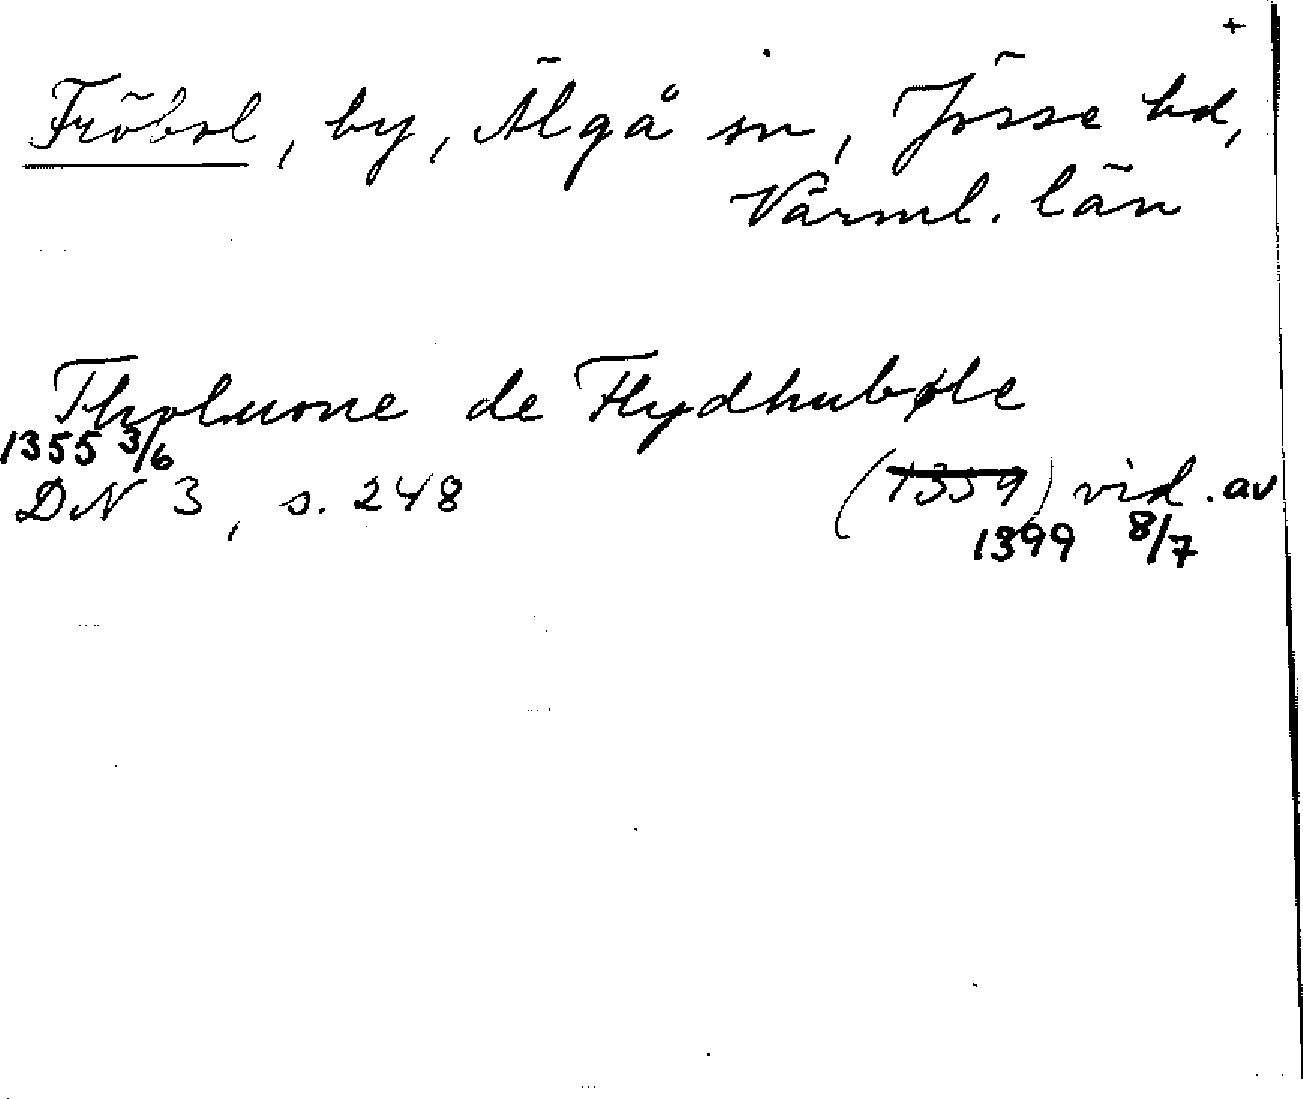 +
Fröbol, by, Älgå sn, Jösse hd,
Värml. län
Tholuone de Flydhubøle
1355 3/6
DN 3, s. 248 (1359) vid. av
1399 8/7